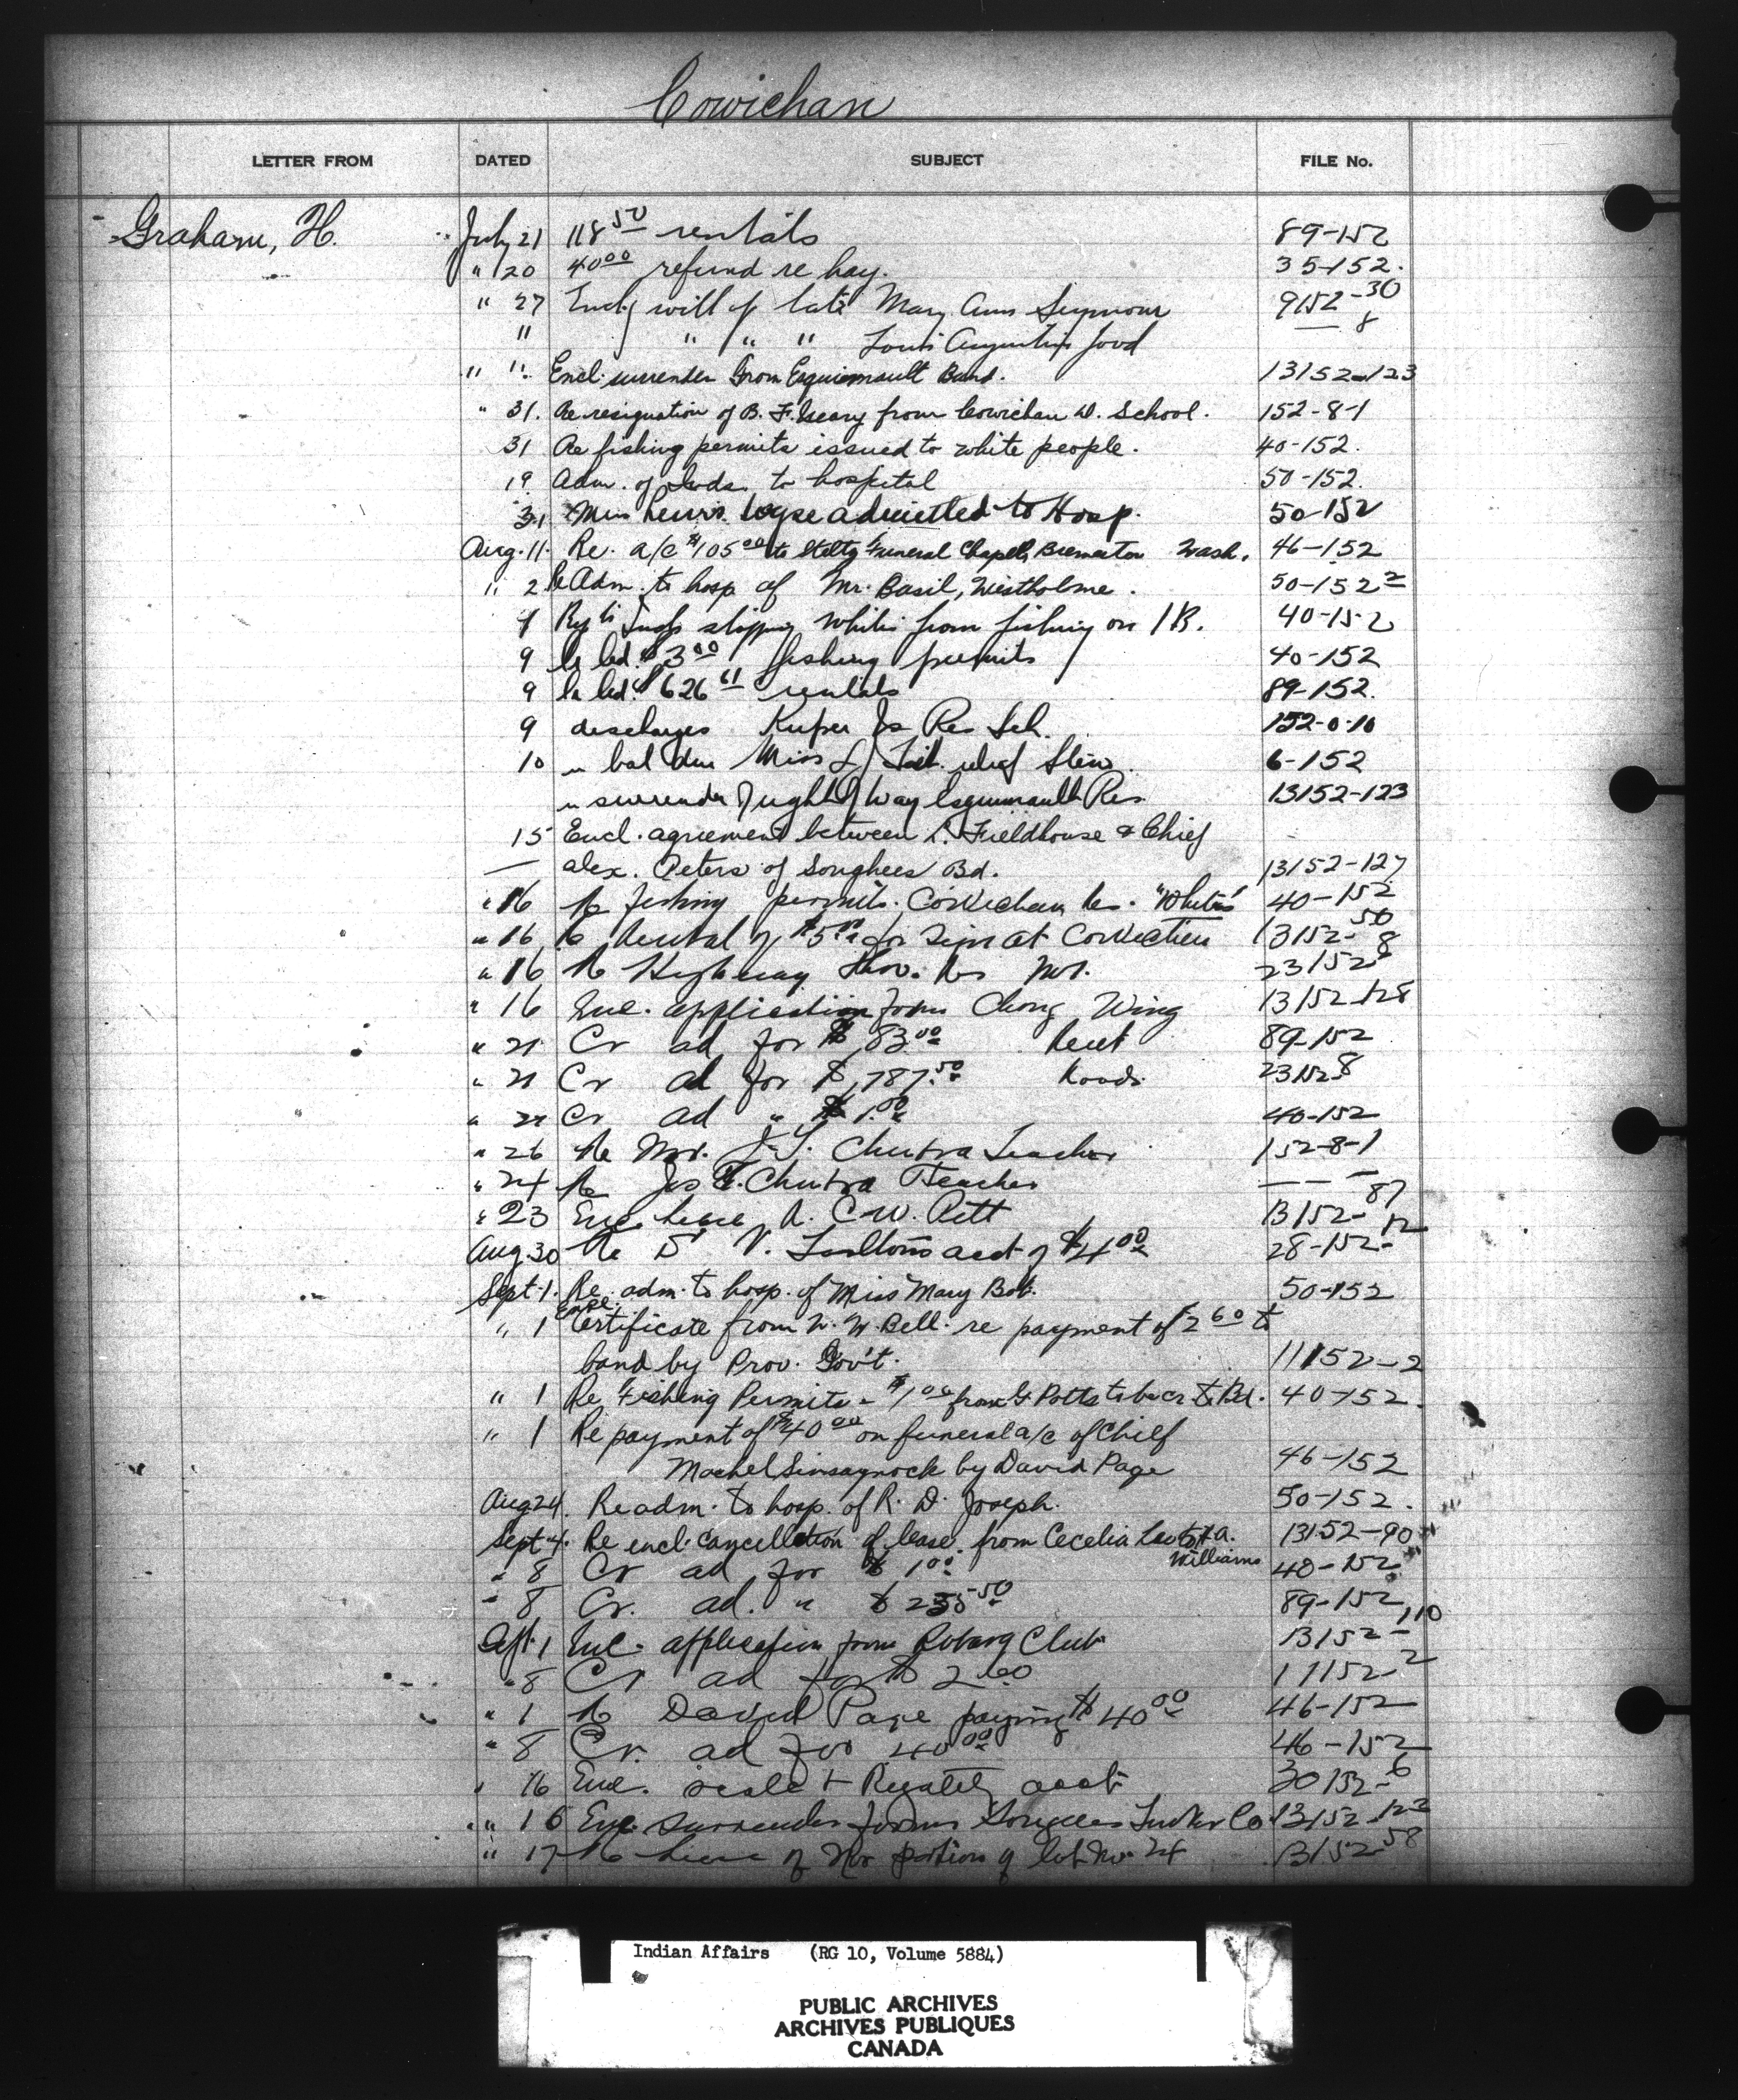 Cowichan
LETTER FROM DATED SUBJECT FILE No.
Graham, H. July 21 118 50 rentals 89-152
" 20 40 00 refund re hay. 35-152.
" 27 Encl. will of late Mary Ann Seymour 9152-30
" " " " Louis Augustin 8
" " Encl. surrender from Esquimault Band. 13152-123
" 31. Re resignation of B. F. from Cowichan W. School. 152-8-1
31 Re fishing permits issued to white people. 40-152.
19 Adm. of Inds. to hospital 50-152.
31 Lewis admitted to Hosp. 50-152
Aug. 11. Re. a/c $105 00 to Funeral Chapel, Bremerton Wash. 46-152
" 2 Re Adm. to hosp of Mr. Basil, Westholme. 50-152 2
Inds stopping whites from fishing on I R. 40-152
9 $3 00 fishing permits 40-152
9 $626 61 rentals 89-152.
9 discharges Kuper Is Res Sch. 152-0-10
10 " bal due Miss 6-152
" surrender right of way Esquimault Res. 13152-123
15 Encl. agreement between L. Fieldhouse & Chief
— Alex. Peters of Songhees Bd. 13152-127
" 16 Re fishing permits. Cowichan Res. "Whites" 40-152
" 16 Re Rental of $5 00 for Sign at Cowichan 13152-50
" 16 Re Highway thro. Res No 1. 23152 8
" 16 Enc. application from Chong Wing 13152-128
" 21 Cr ad for $83 00 Rent 89-152
" 21 Cr ad for $787.50 Roads. 23152 8
" 21 Cr ad " $1.00 40-152
" 26 Re Mr. J. T. Teacher 152-8-1
" 24 Re Jos Teacher — — —
" 23 Enc. lease A. C. W. Pitt 13152-87
Aug 30 Re D. V. acct of $4 00 28-152-12
Sept. 1. Re. adm. to hosp. of Miss Mary Bob. 50-152
" 1 Encl. Certificate from W. W. Bell. re payment of 2 60 to
band by Prov. Gov't. 11152-2
" 1 Re Fishing Permits - $1 00 from G Potts to be cr to Bd. 40-152.
" 1 Re payment of $40 00 on funeral a/c of Chief
by David Page 46-152
Aug 24. Re adm. to hosp. of R. D. Joseph. 50-152.
Sept 4. Re encl. cancellation of lease from Cecelia to A. 13152-90
Williams
" 8 Cr ad for $1 00 40-152
" 8 Cr. ad. " 50 89-152
Sept. 1 Enc. application from Club 13152-110
" 8 Cr ad for $2.60 11152-2
" 1 Re David Page paying $40 00 46-152
" 8 Cr. ad for 40 00 46-152
" 16 Enc. scale & Royalty acct 30152-6
" 16 Enc. surrender form Co. 13152-123
" 17 Re lease of portion of lot No. 24 13152-58
Indian Affairs (RG 10, Volume 5884)
PUBLIC ARCHIVES
ARCHIVES PUBLIQUES
CANADA